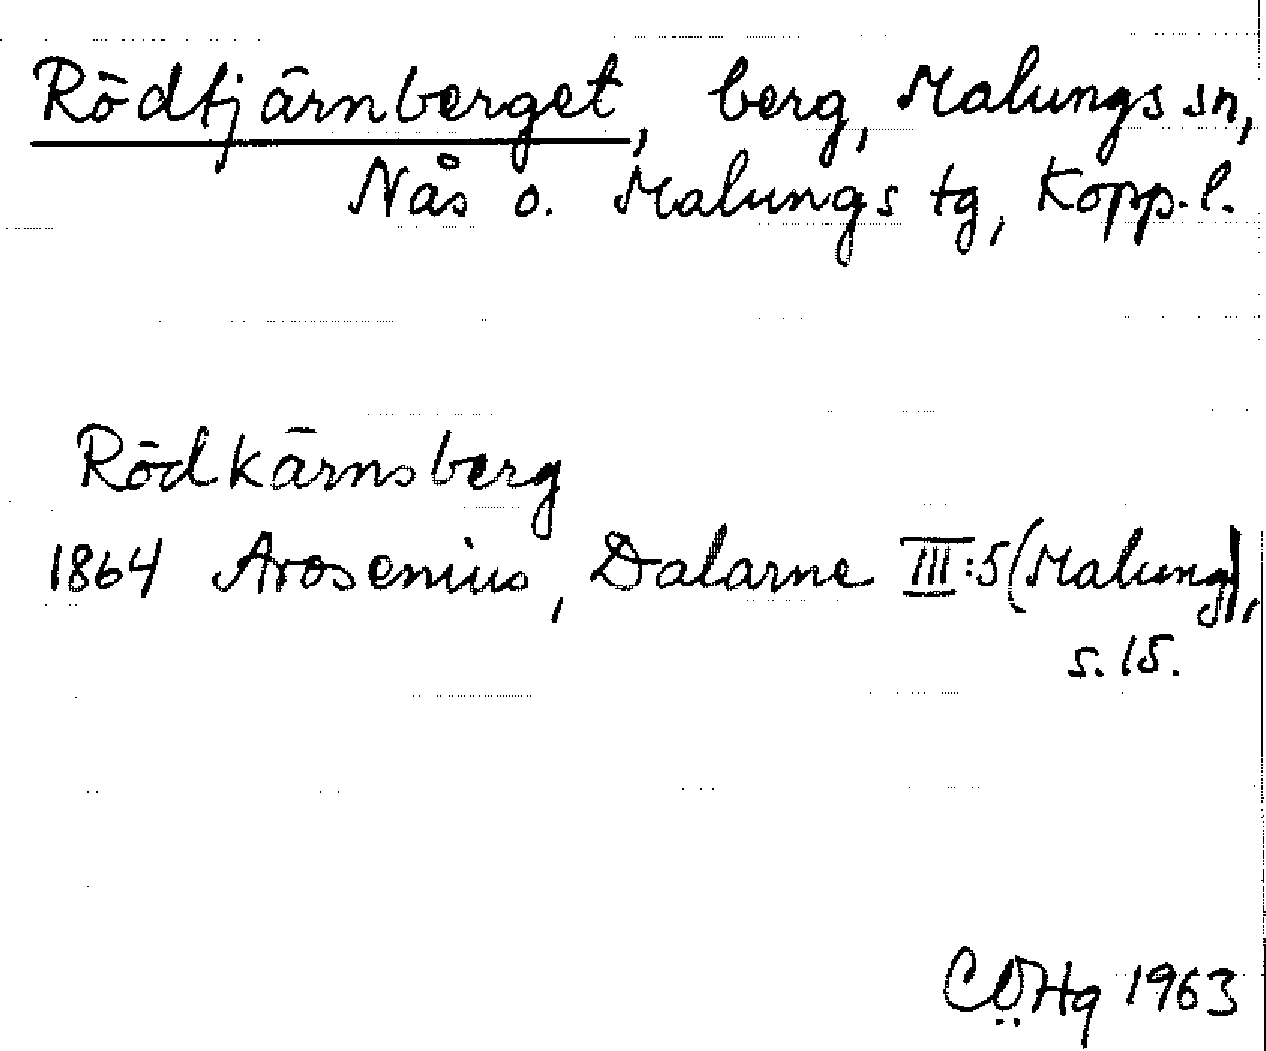 Rödtjärnberget, berg, Malungs sn,
Nås o. Malungs tg, Kopp. l.
Rödkärnsberg
1864 Arosenius, Dalarne III:5 (Malung),
s. 15.
CÖHg 1963